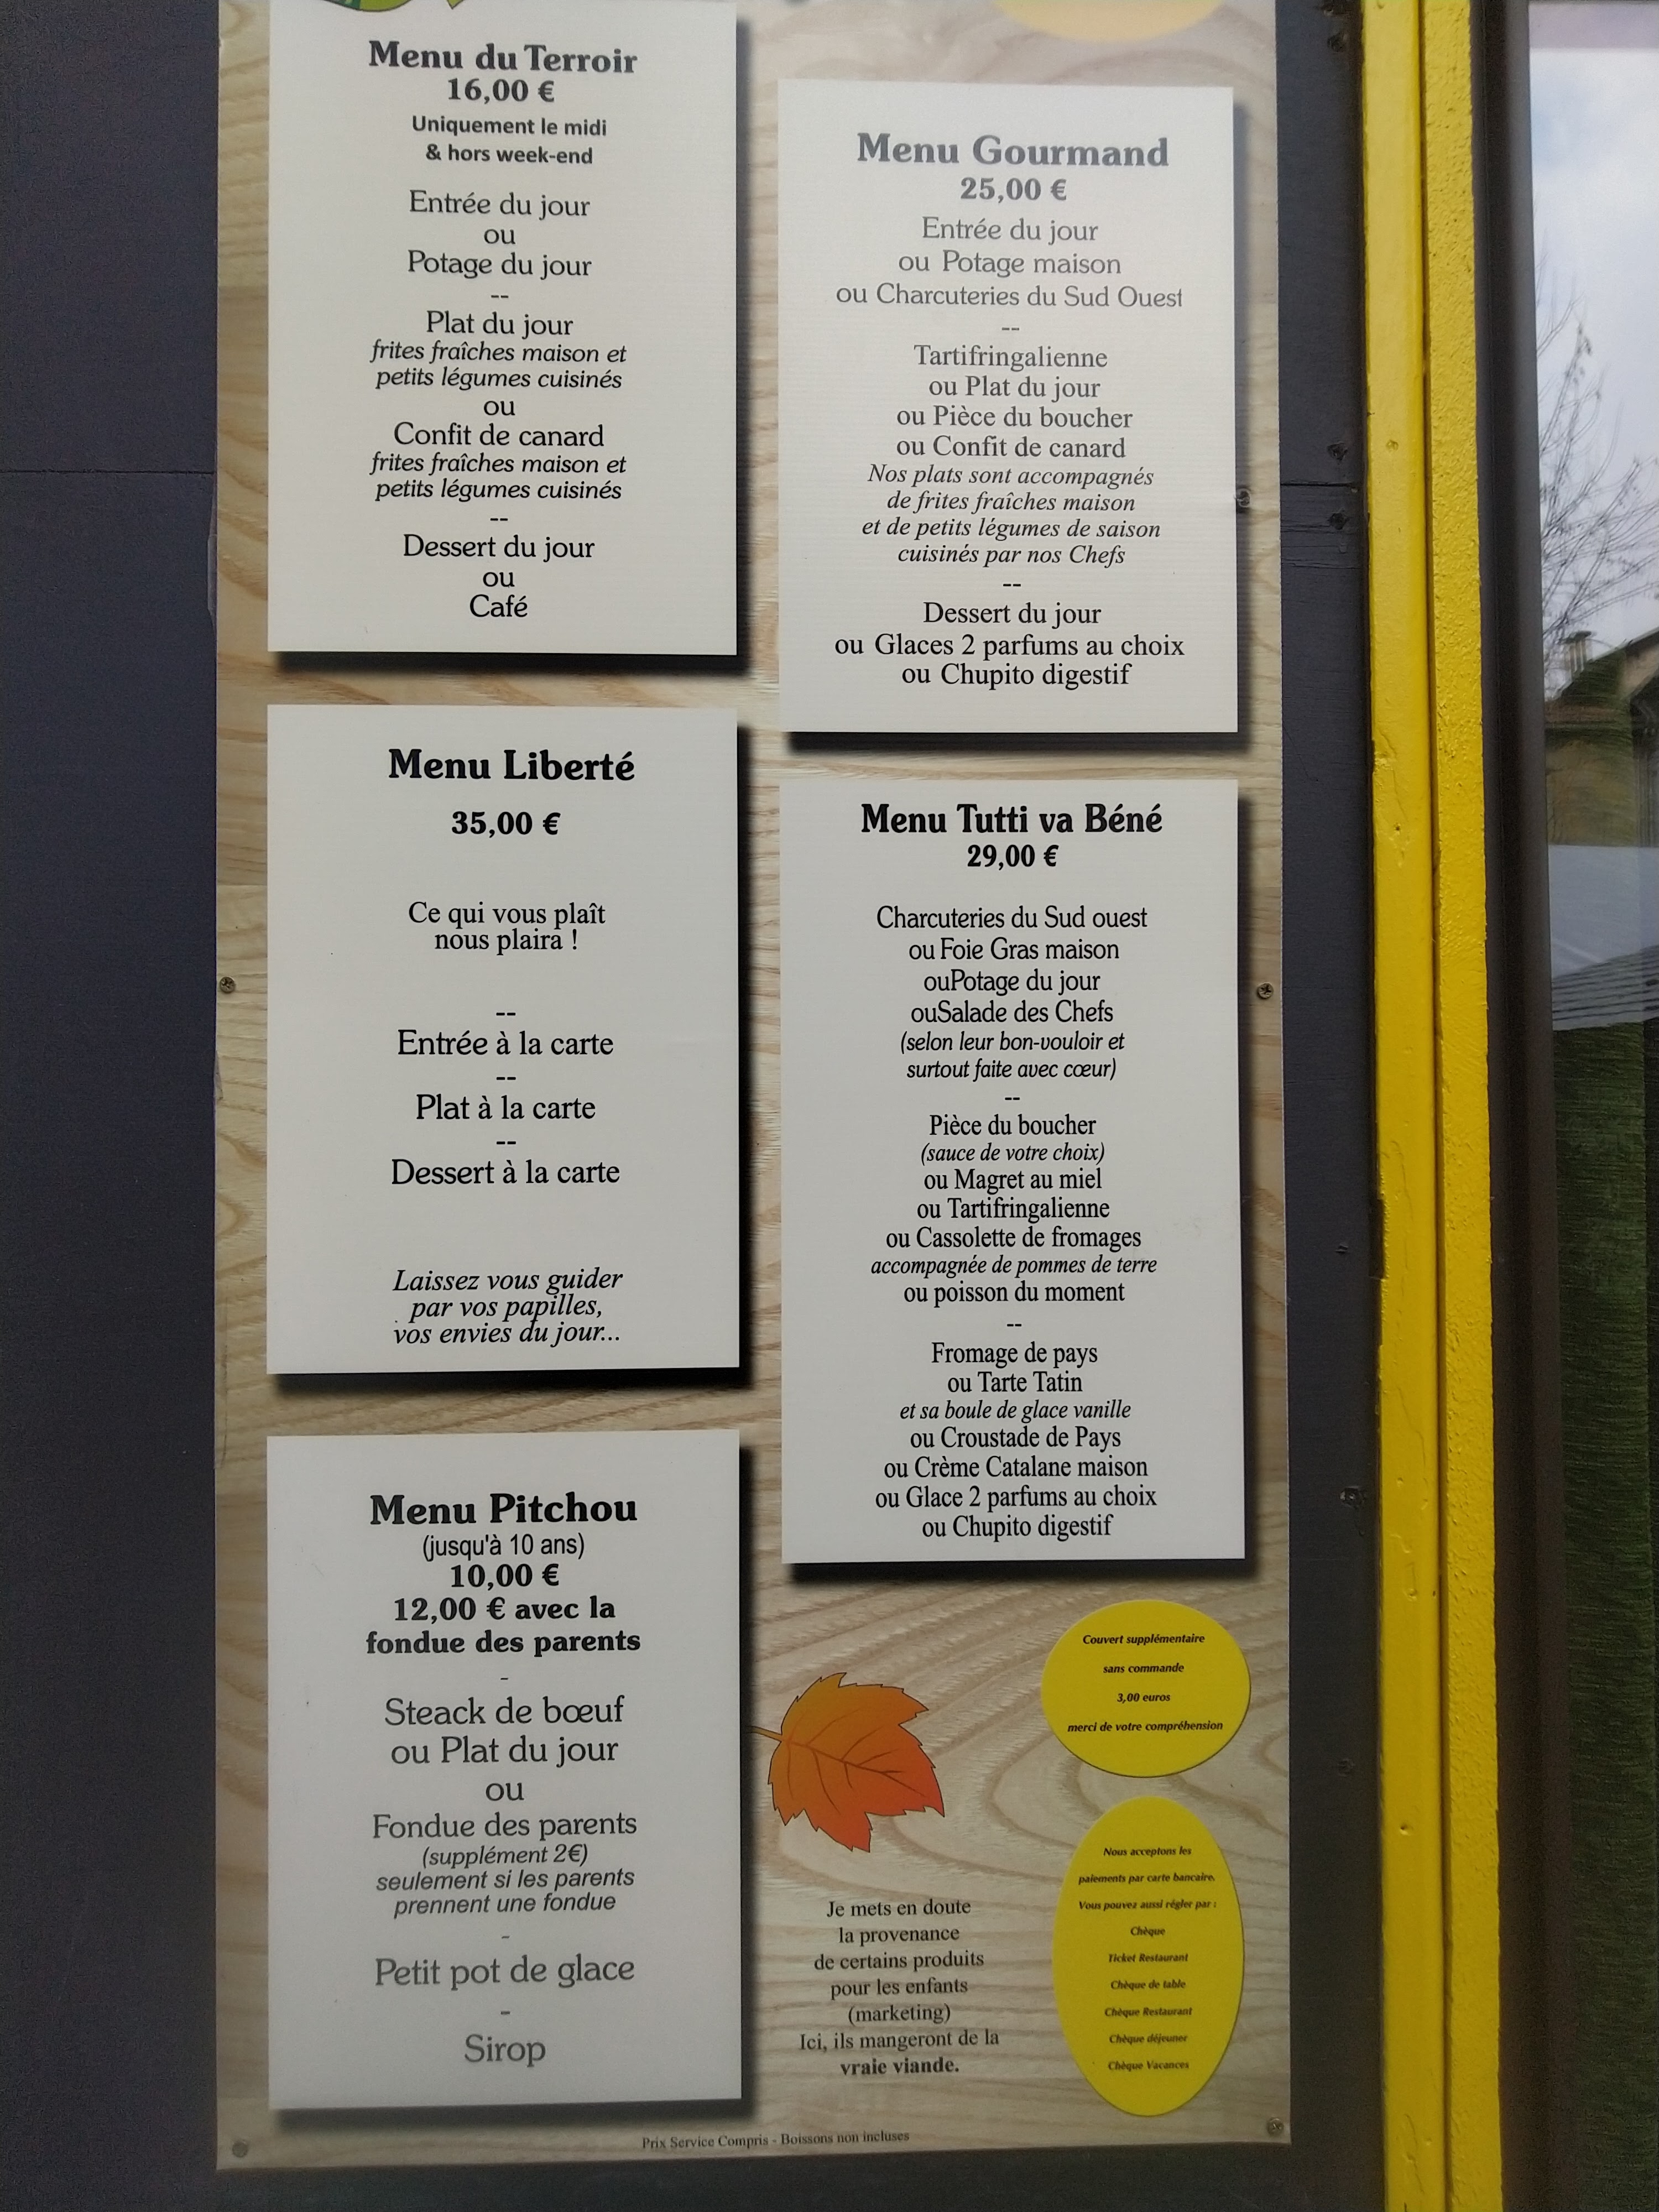 Menu du Terroir
16,00 €
Uniquement le midi
& hors week-end
Entrée du jour
ou
Potage du jour
--
Plat du jour
frites fraîches maison et
petits légumes cuisinés
ou
Confit de canard
frites fraîches maison et
petits légumes cuisinés
--
Dessert du jour
ou
Café
Menu Gourmand
25,00 €
Entrée du jour
ou Potage maison
ou Charcuteries du Sud Ouest
--
Tartifringalienne
ou Plat du jour
ou Pièce du boucher
ou Confit de canard
Nos plats sont accompagnés
de frites fraîches maison
et de petits légumes de saison
cuisinés par nos Chefs
--
Dessert du jour
ou Glaces 2 parfums au choix
ou Chupito digestif
Menu Liberté
35,00 €
Ce qui vous plaît
nous plaira !
--
Entrée à la carte
--
Plat à la carte
--
Dessert à la carte
Laissez vous guider
par vos papilles,
vos envies du jour...
Menu Tutti va Béné
29,00 €
Charcuteries du Sud ouest
ou Foie Gras maison
ouPotage du jour
ouSalade des Chefs
(selon leur bon-vouloir et
surtout faite avec cœur)
--
Pièce du boucher
(sauce de votre choix)
ou Magret au miel
ou Tartifringalienne
ou Cassolette de fromages
accompagnée de pommes de terre
ou poisson du moment
--
Fromage de pays
ou Tarte Tatin
et sa boule de glace vanille
ou Croustade de Pays
ou Crème Catalane maison
ou Glace 2 parfums au choix
ou Chupito digestif
Menu Pitchou
(jusqu'à 10 ans)
10,00 €
12,00 € avec la
fondue des parents
-
Steack de bœuf
ou Plat du jour
ou
Fondue des parents
(supplément 2€)
seulement si les parents
prennent une fondue
-
Petit pot de glace
-
Sirop
Couvert supplémentaire
sans commande
3,00 euros
merci de votre compréhension
Je mets en doute
la provenance
de certains produits
pour les enfants
(marketing)
Ici, ils mangeront de la
vraie viande.
Nous acceptons les
paiements par carte bancaire.
Vous pouvez aussi régler par :
Chèque
Ticket Restaurant
Chèque de table
Chèque Restaurant
Chèque déjeuner
Chèque Vacances
Prix Service Compris - Boissons non incluses